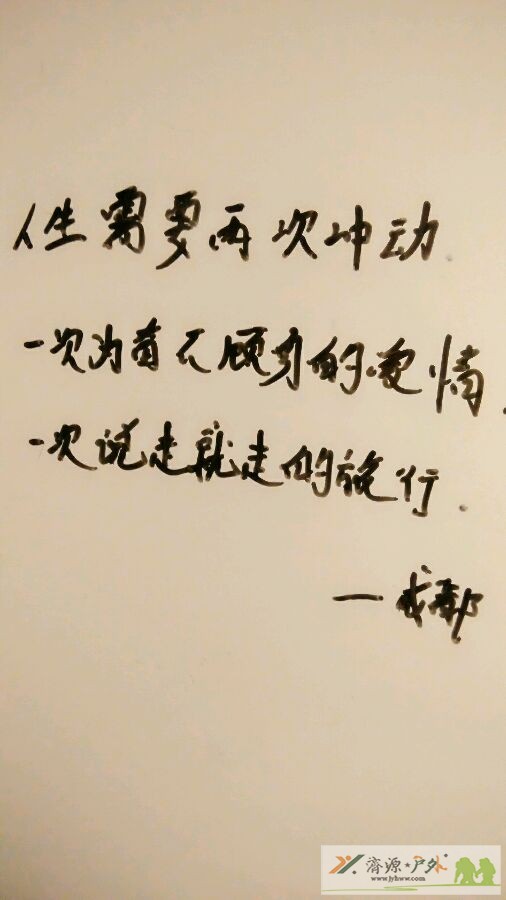 人生需要两次冲动
一次为奋不顾身的爱情,
一次说走就走的旅行.
—成都
济源★户外
www.jyhww.com